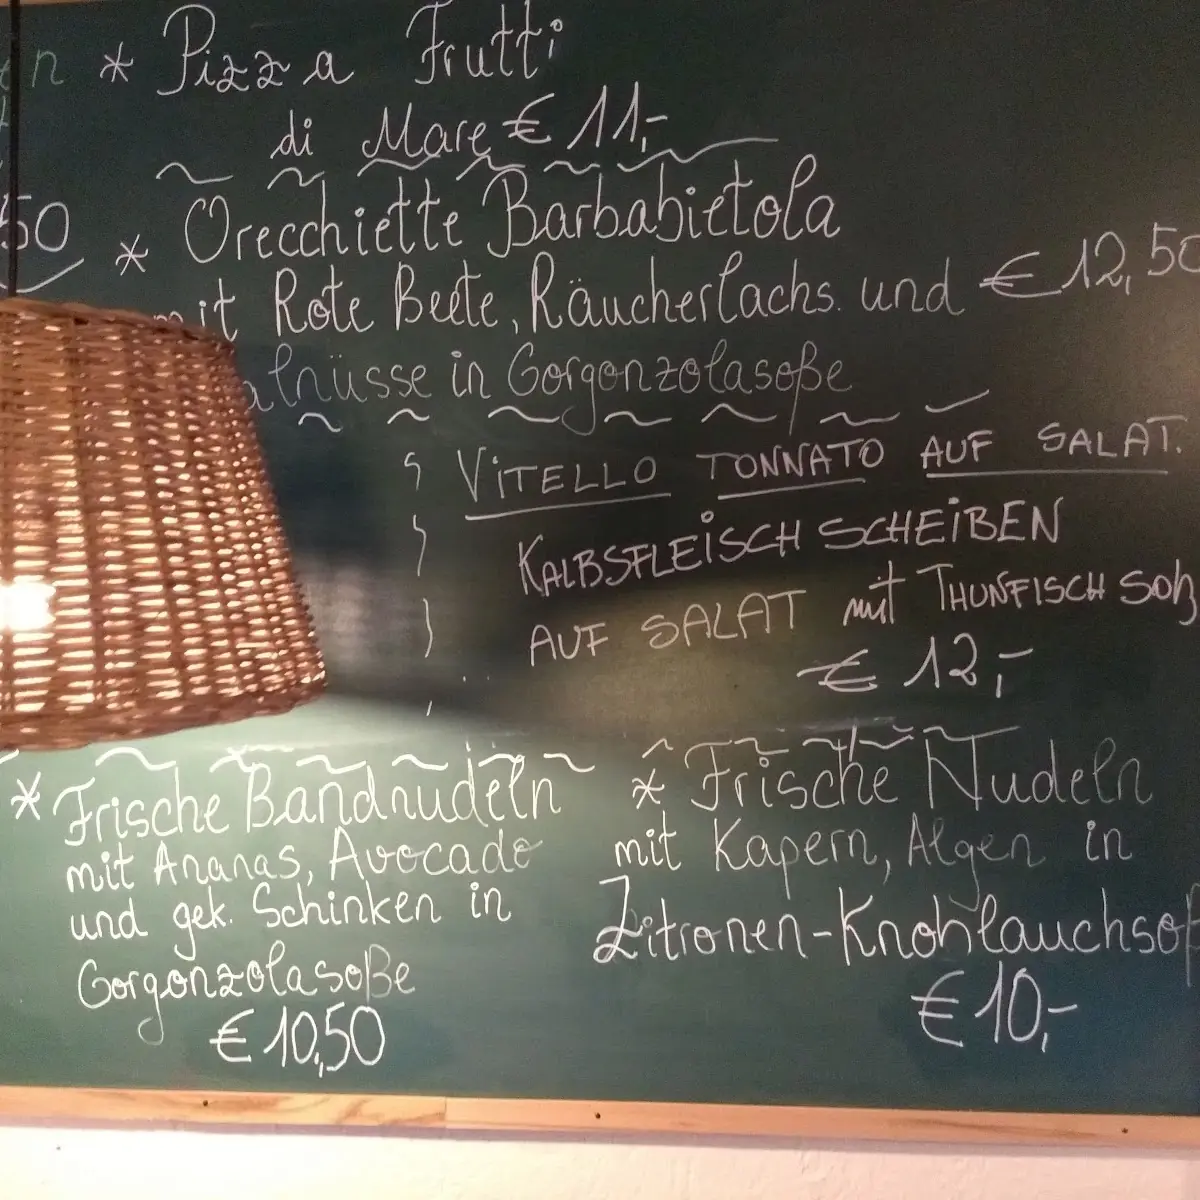 * Pizza Frutti
di Mare € 11,-
50
* Orecchiette Barbabietola
mit Rote Beete, Räucherlachs und € 12,50
alnüsse in Gorgonzolasoße
VITELLO TONNATO AUF SALAT.
KALBSFLEISCH SCHEIBEN
AUF SALAT mit THUNFISCH SOß
€ 12,-
* Frische Bandnudeln
mit Ananas, Avocado
und gek. Schinken in
Gorgonzolasoße
€ 10,50
* Frische Nudeln
mit Kapern, Algen in
Zitronen-Knoblauchsoß
€ 10,-